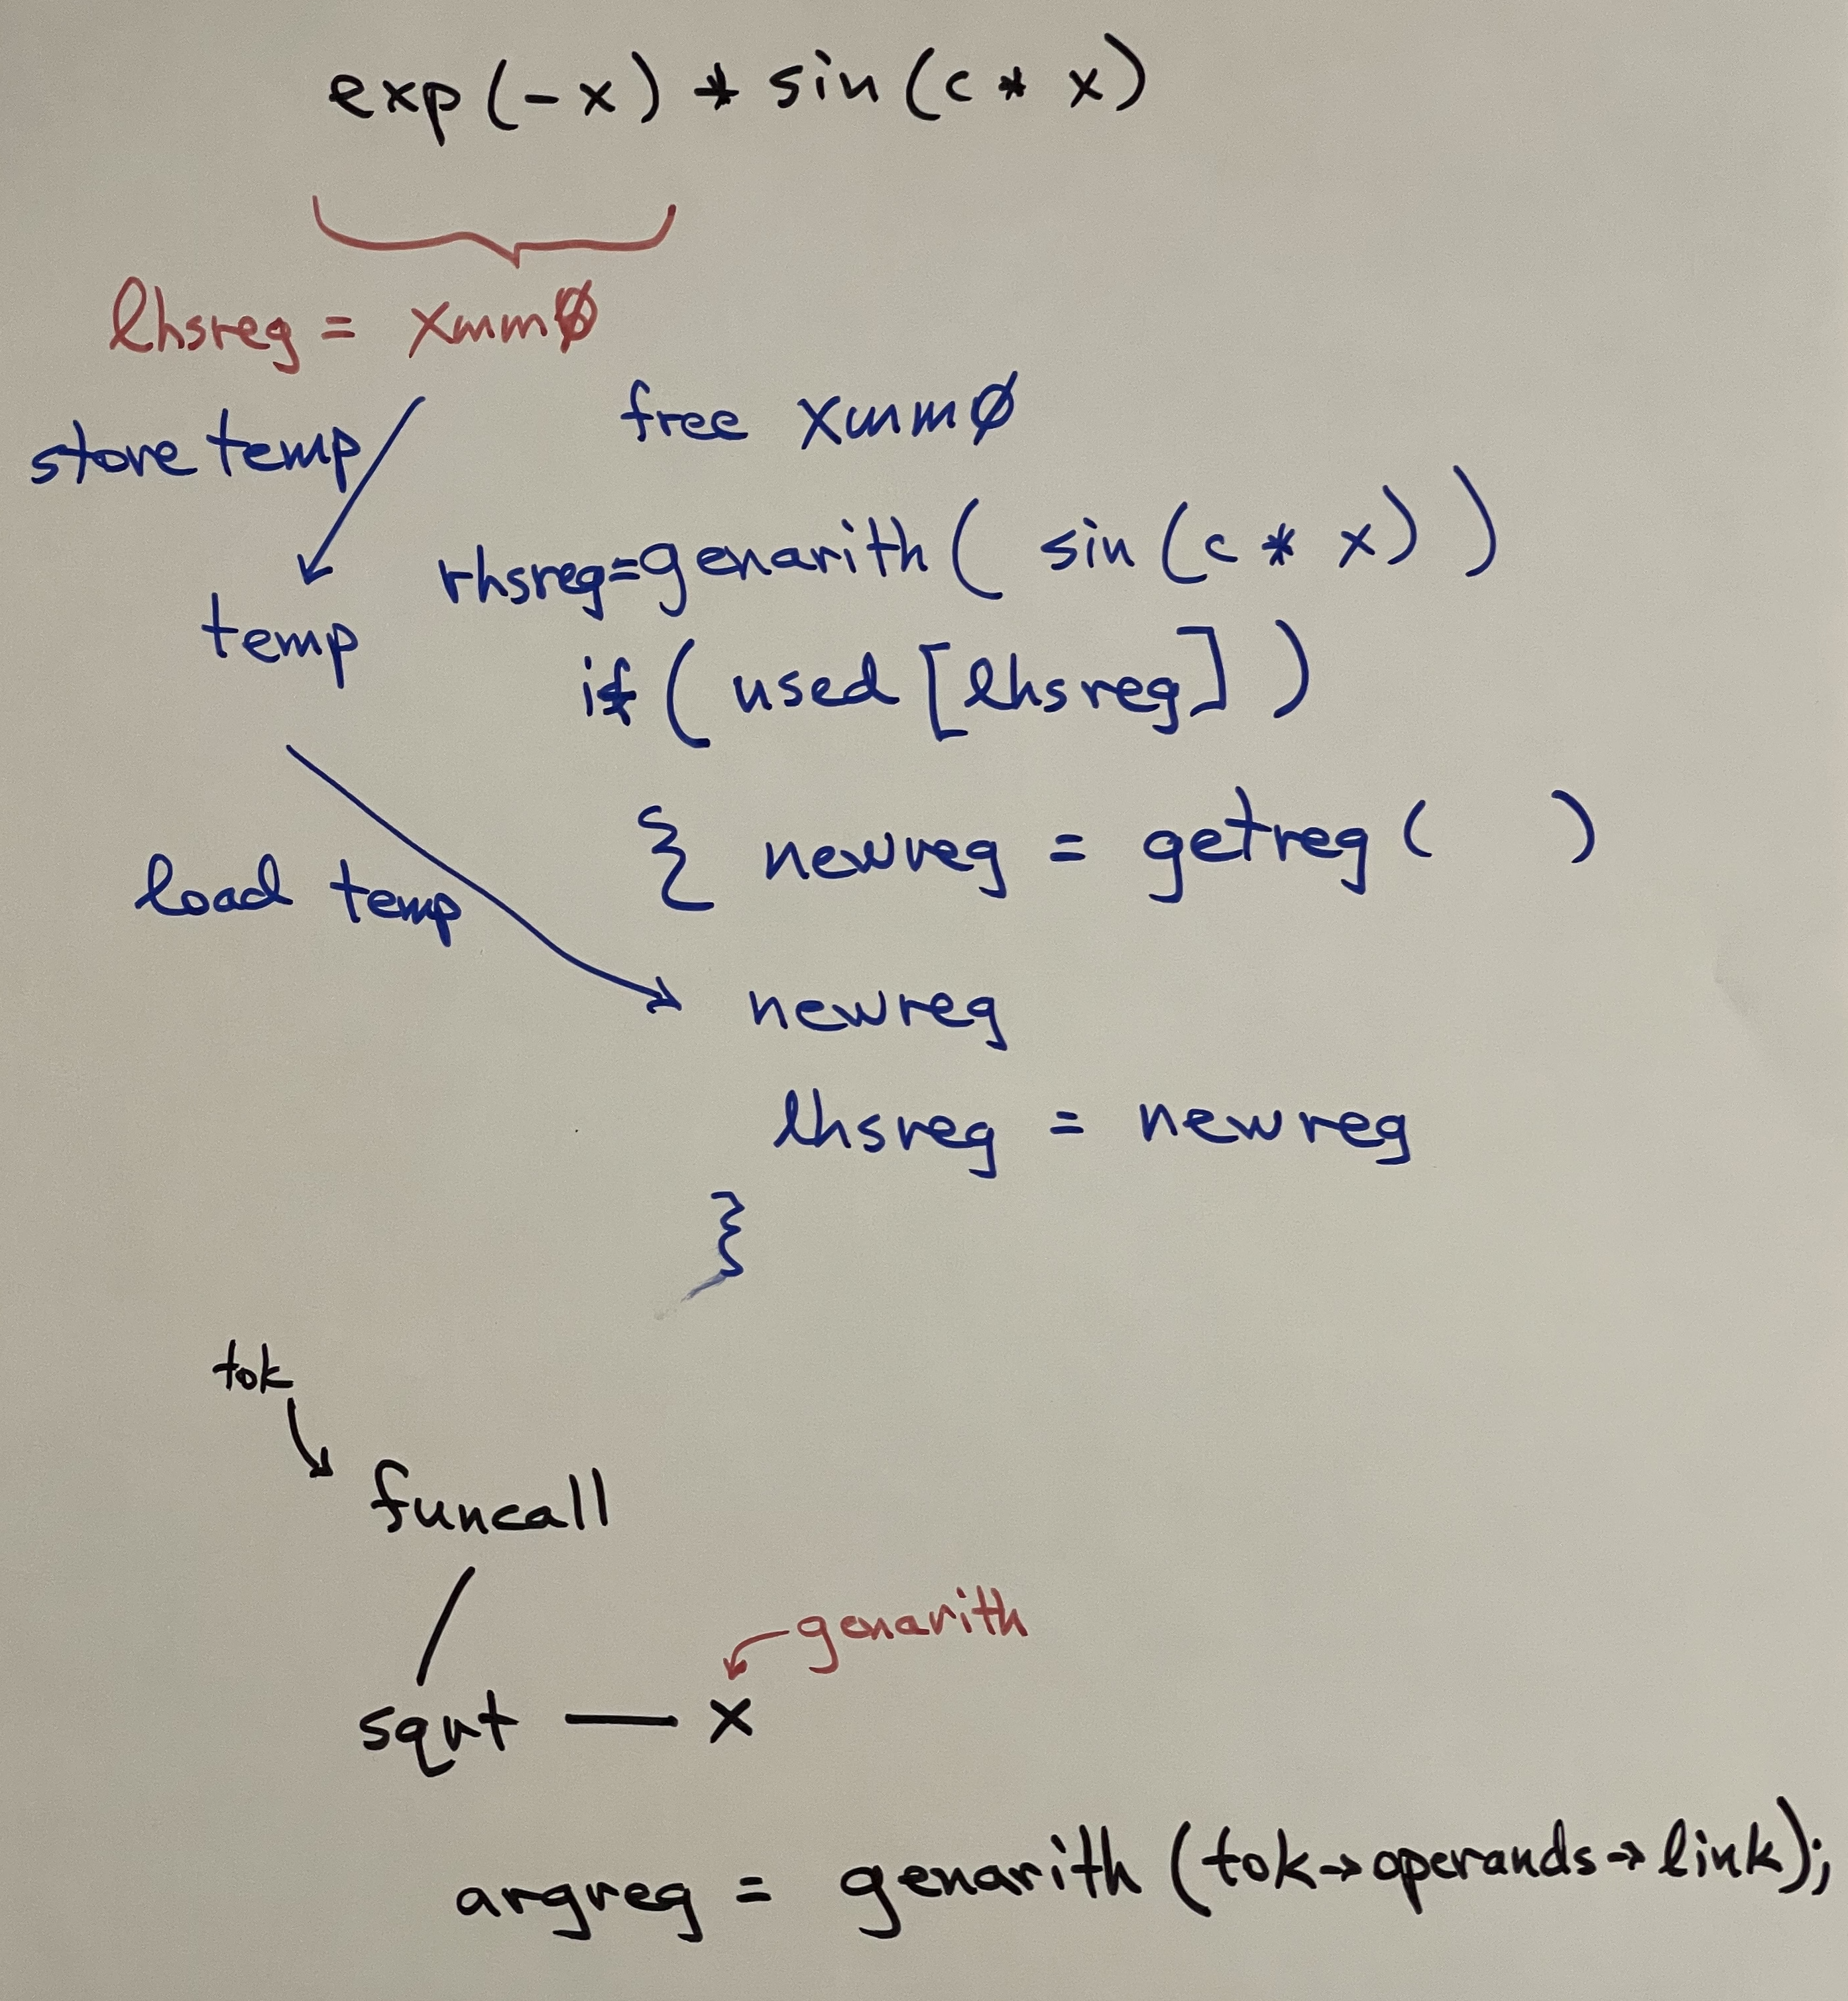 exp(-x) * sin(c * x)
lhsreg = xmm0
store temp
free xmm0
rhsreg=genarith( sin(c * x) )
temp
if( used[lhsreg] )
{ newreg = getreg( )
load temp
newreg
lhsreg = newreg
}
tok
funcall
genarith
sqrt — x
argreg = genarith(tok→operands→link);